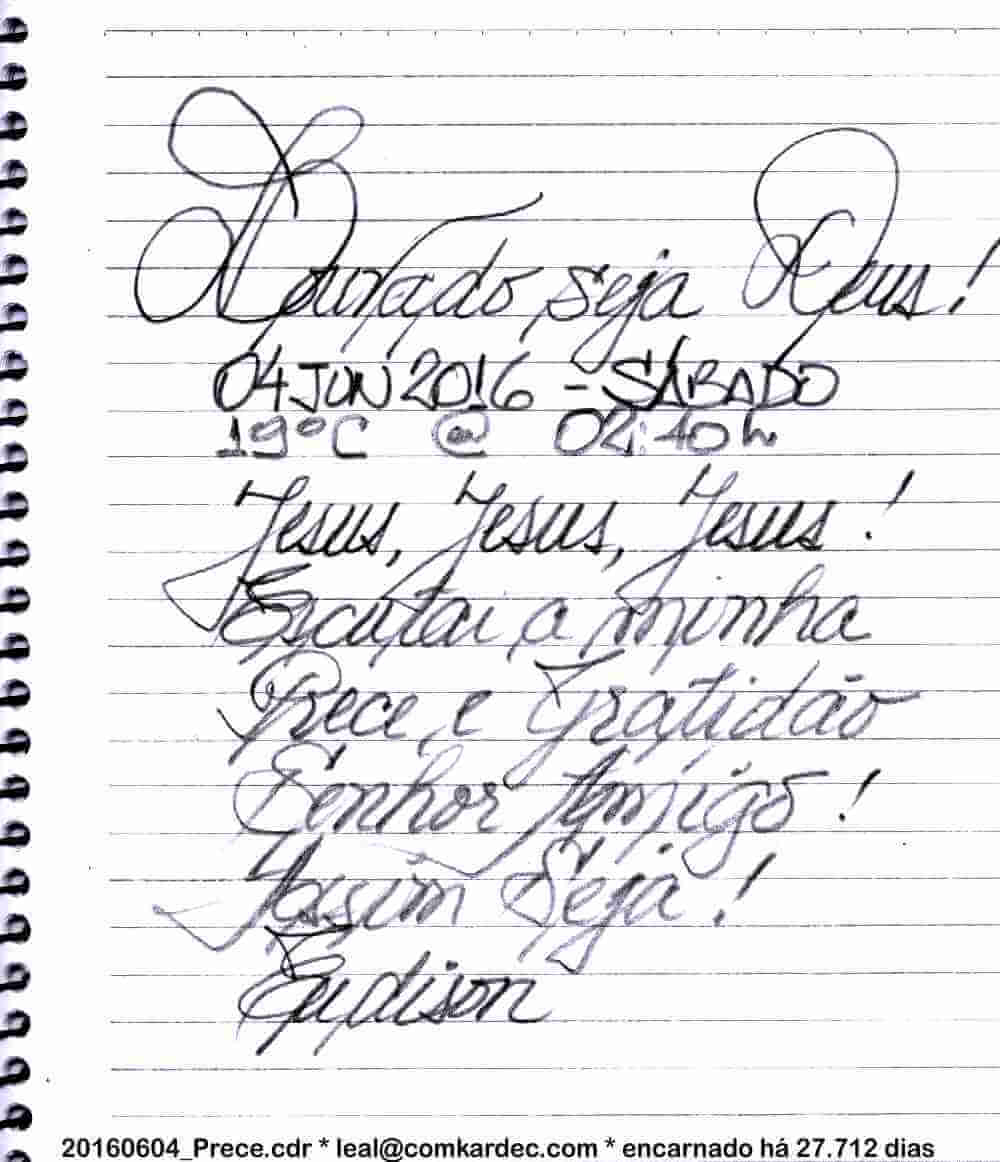 Louvado seja Deus!
04 JUN 2016 - SÁBADO
19°C @ 02:40h
Jesus, Jesus, Jesus!
Escutai a minha
Prece e Gratidão
Senhor Amigo!
Assim Seja!
Eudison
20160604_Prece.cdr * leal@comkardec.com * encarnado há 27.712 dias